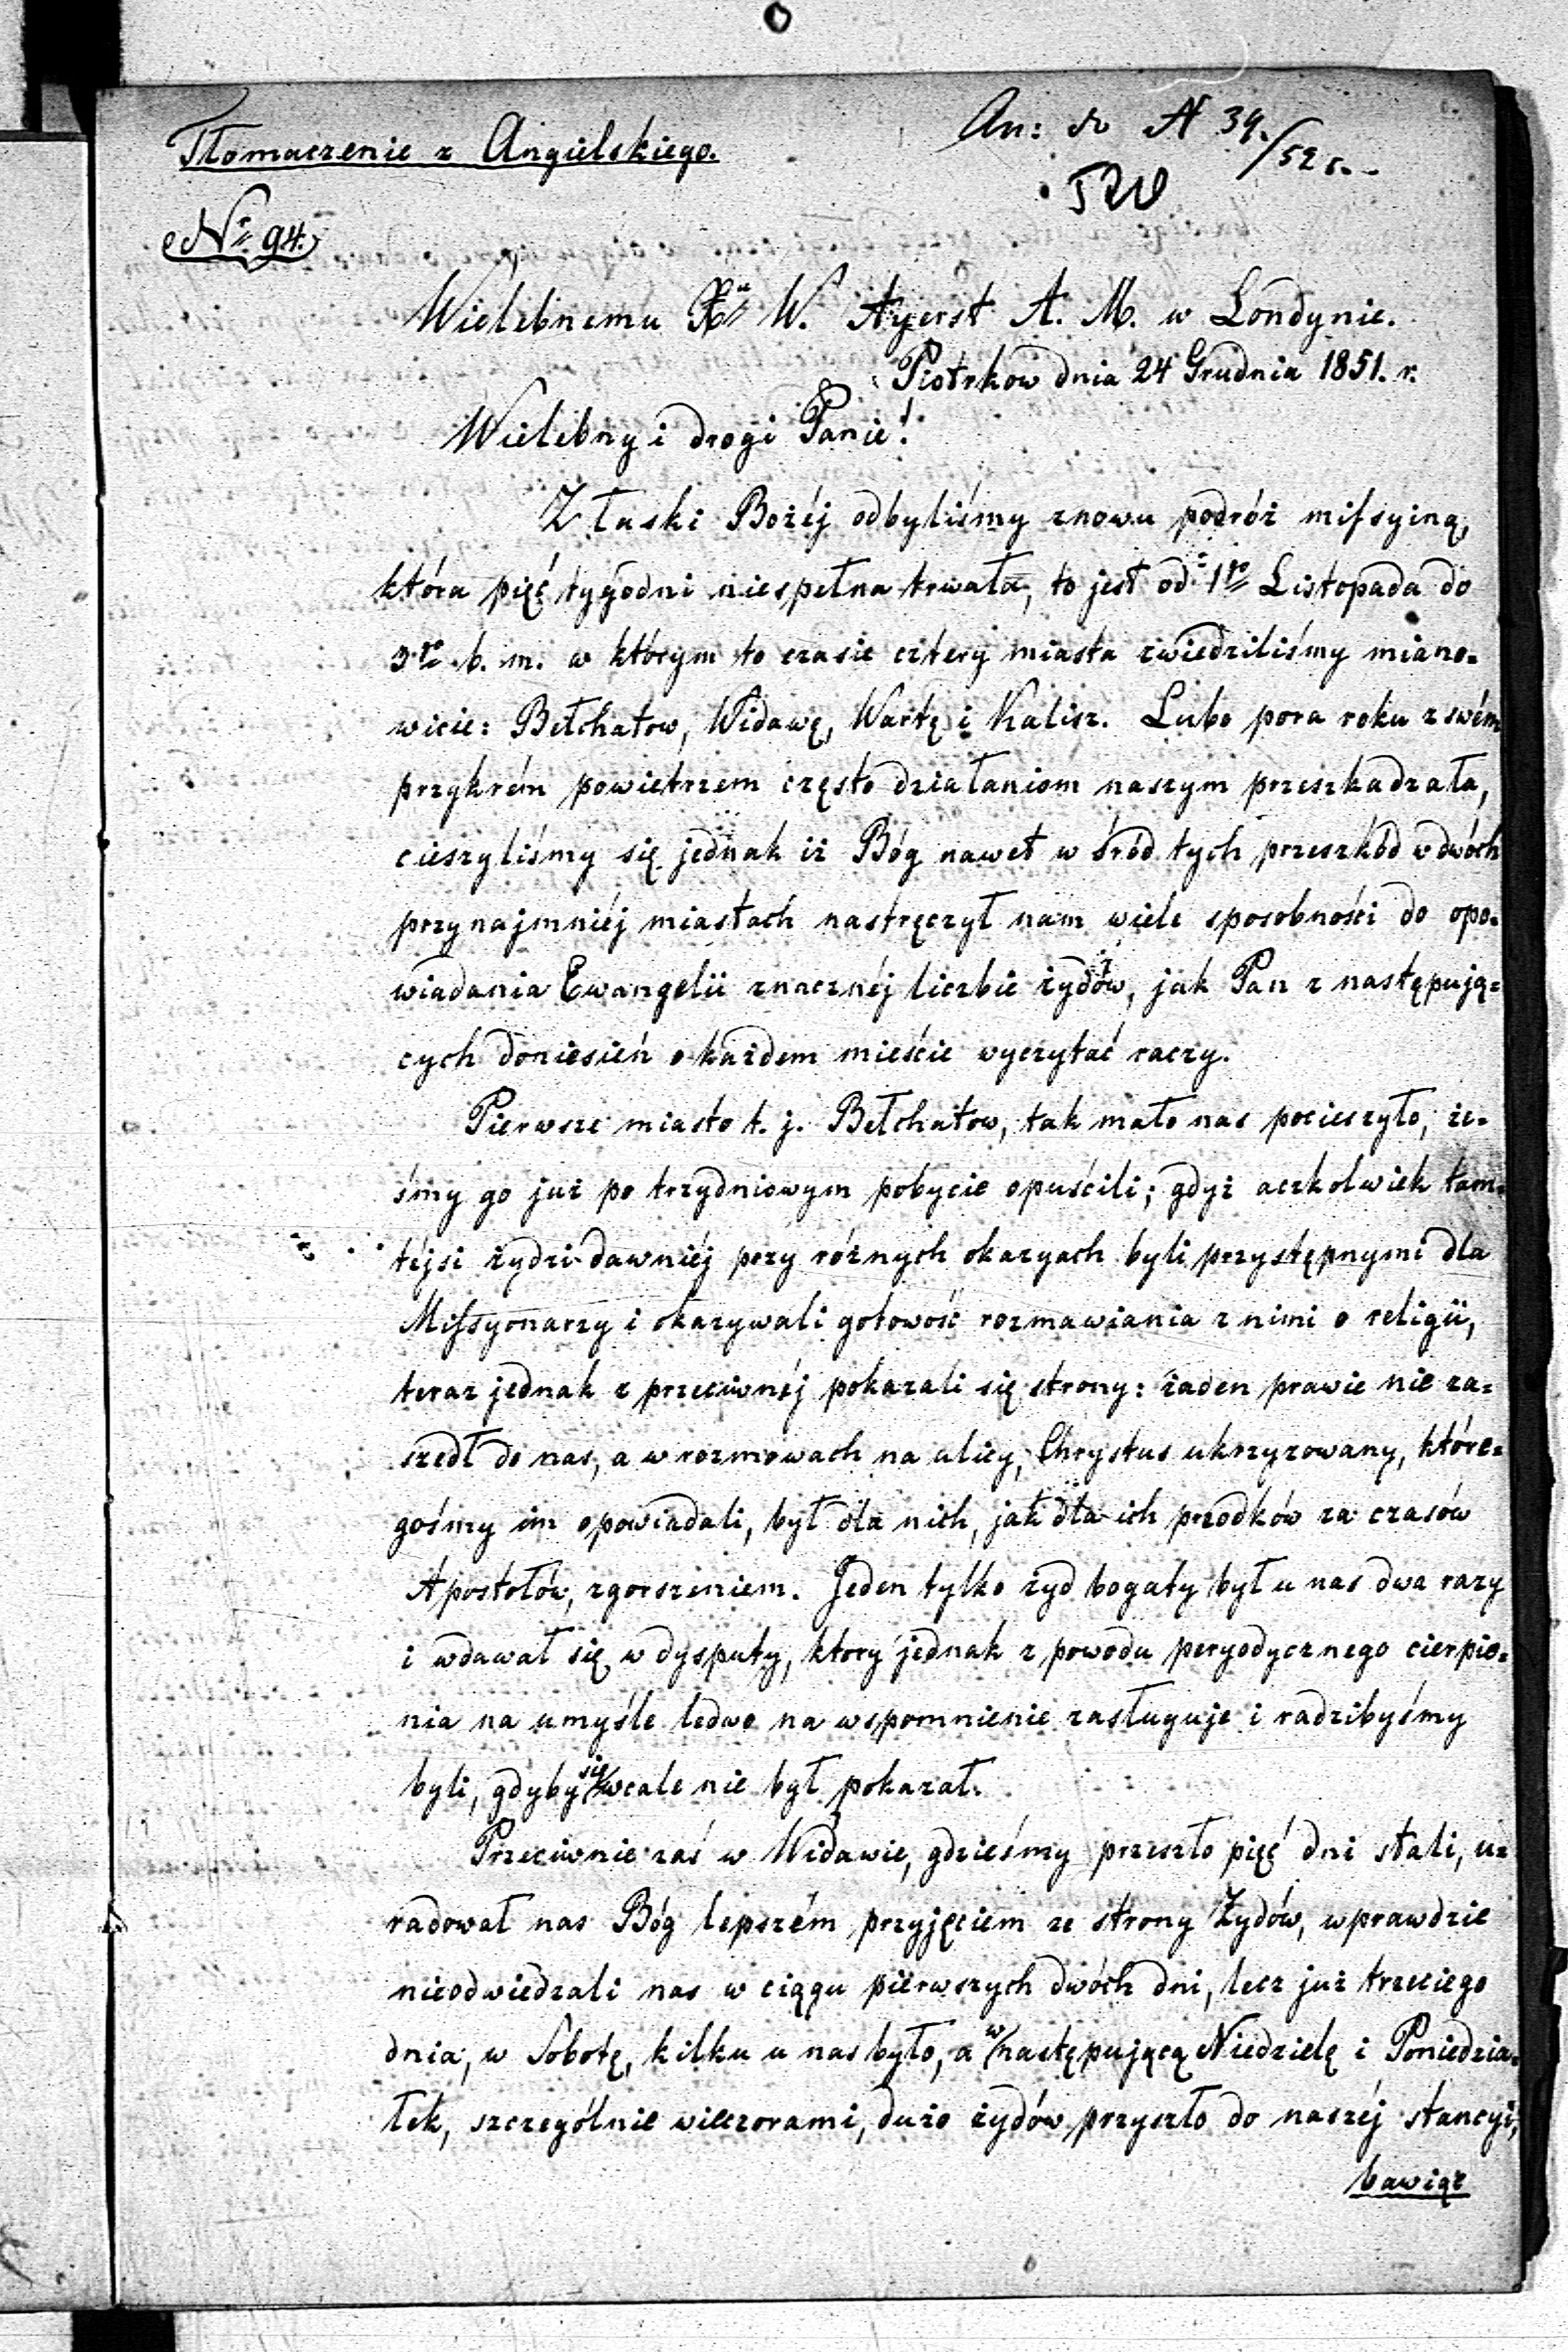 Tłomaczenie z Angielskiego.
An: do N 39./52 r.
Nr 94.
Wielebnemu Xu W. Ayerst A. M. w Londynie.
Piotrkow dnia 24 Grudnia 1851. r.
Wielebny i drogi Panie!
Z łaski Bożéj odbyliśmy znowu podróż missyiną,
która pięć tygodni niespełna trwała, to jest od 1go Listopada do
3go b. m. w którym to czasie cztery miasta zwiedziliśmy miano=
wicie: Bełchatow, Widawę, Wartę i Kalisz. Lubo pora roku z swém
przykrém powietrzem często działaniom naszym przeszkadzała,
cieszyliśmy się jednak iż Bóg nawet w śród tych przeszkód w dwóch
przynajmniéj miastach nastręczył nam wiele sposobności do opo=
wiadania Ewangelii znacznéj liczbie żydów, jak Pan z następują=
cych doniesień o każdem mieście wyczytać raczy.
Pierwsze miasto t. j. Bełchatow, tak mało nas pocieszyło, że=
śmy go już po trzydniowym pobycie opuścili; gdyż aczkolwiek tam=
téjsi żydzi dawniéj przy różnych okazyach byli przystępnymi dla
Missyonarzy i okazywali gotowość rozmawiania z nimi o religii,
teraz jednak z przeciwnéj pokazali się strony: żaden prawie nie za=
szedł do nas, a w rozmowach na ulicy, Chrystus ukrzyżowany, które=
gośmy im opowiadali, był dla nich, jak dla ich przodków za czasów
Apostołów, zgorszeniem. Jeden tylko żyd bogaty był u nas dwa razy
i wdawał się w dysputy, ktory jednak z powodu peryodycznego cierpie=
nia na umyśle ledwo na wspomnienie zasługuje i radzibyśmy
byli, gdyby się wcale nie był pokazał.
Przeciwnie zaś w Widawie, gdzieśmy przeszło pięć dni stali, u=
radował nas Bóg lepszém przyjęciem ze strony Żydów, wprawdzie
nieodwiedzali nas w ciągu piérwszych dwóch dni, lecz już trzeciego
dnia, w Sobotę, kilku u nas było, a w następującą Niedzielę i Poniedzia=
łek, szczególnie wieczorami, dużo żydów przyszło do naszéj stancyi,
bawiąc